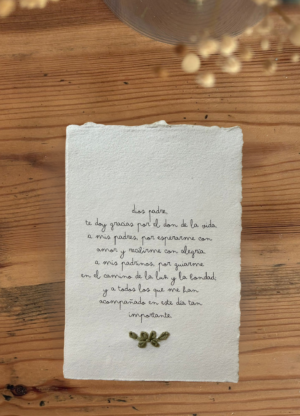 dios padre,
te doy gracias por el don de la vida
a mis padres, por esperarme con
amor y recibirme con alegría
a mis padrinos, por guiarme
en el camino de la luz y la bondad;
y a todos los que me han
acompañado en este día tan
importante.